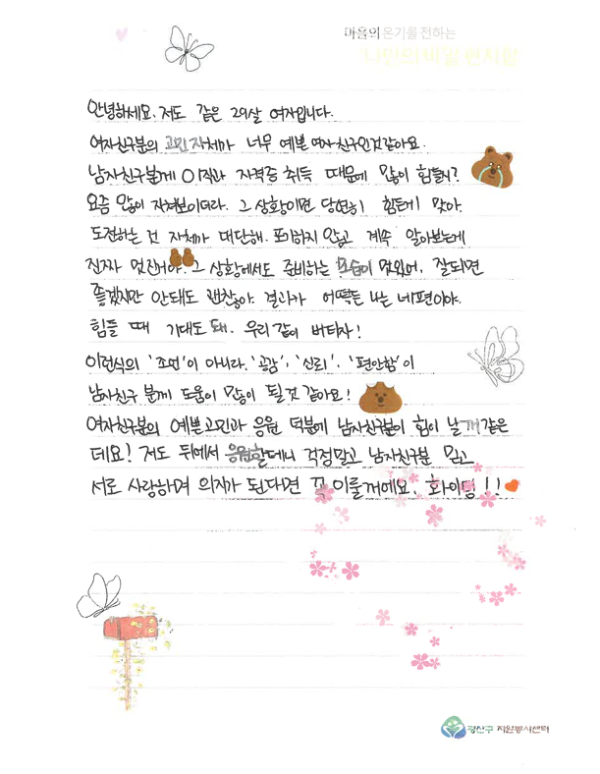 마음의 온기를 전하는
나만의 비밀 편지함
안녕하세요. 저도 같은 29살 여자입니다.
여자친구분의 고민 자체가 너무 예쁜 여자친구인것같아요.
남자친구분께 이직과 자격증 취득 때문에 많이 힘들지?
요즘 많이 지쳐보이더라. 그 상황이면 당연히 힘든게 맞아.
도전하는 것 자체가 대단해. 포기하지 않고 계속 알아보는게
진짜 멋진거야. 그 상황에서도 준비하는 모습이 멋있어. 잘되면
좋겠지만 안돼도 괜찮아. 결과가 어떻든 나는 네편이야.
힘들 때 기대도 돼. 우리 같이 버티자!
이런식의 '조언'이 아니라. '공감', '신뢰', '편안함'이
남자친구 분께 도움이 많이 될것 같아요!
여자친구분의 예쁜고민과 응원 덕분에 남자친구분이 힘이 날꺼같은
데요! 저도 뒤에서 응원할테니 걱정말고 남자친구분 믿고
서로 사랑하며 의지가 된다면 꼭 이룰꺼예요. 화이팅!!
광산구 자원봉사센터